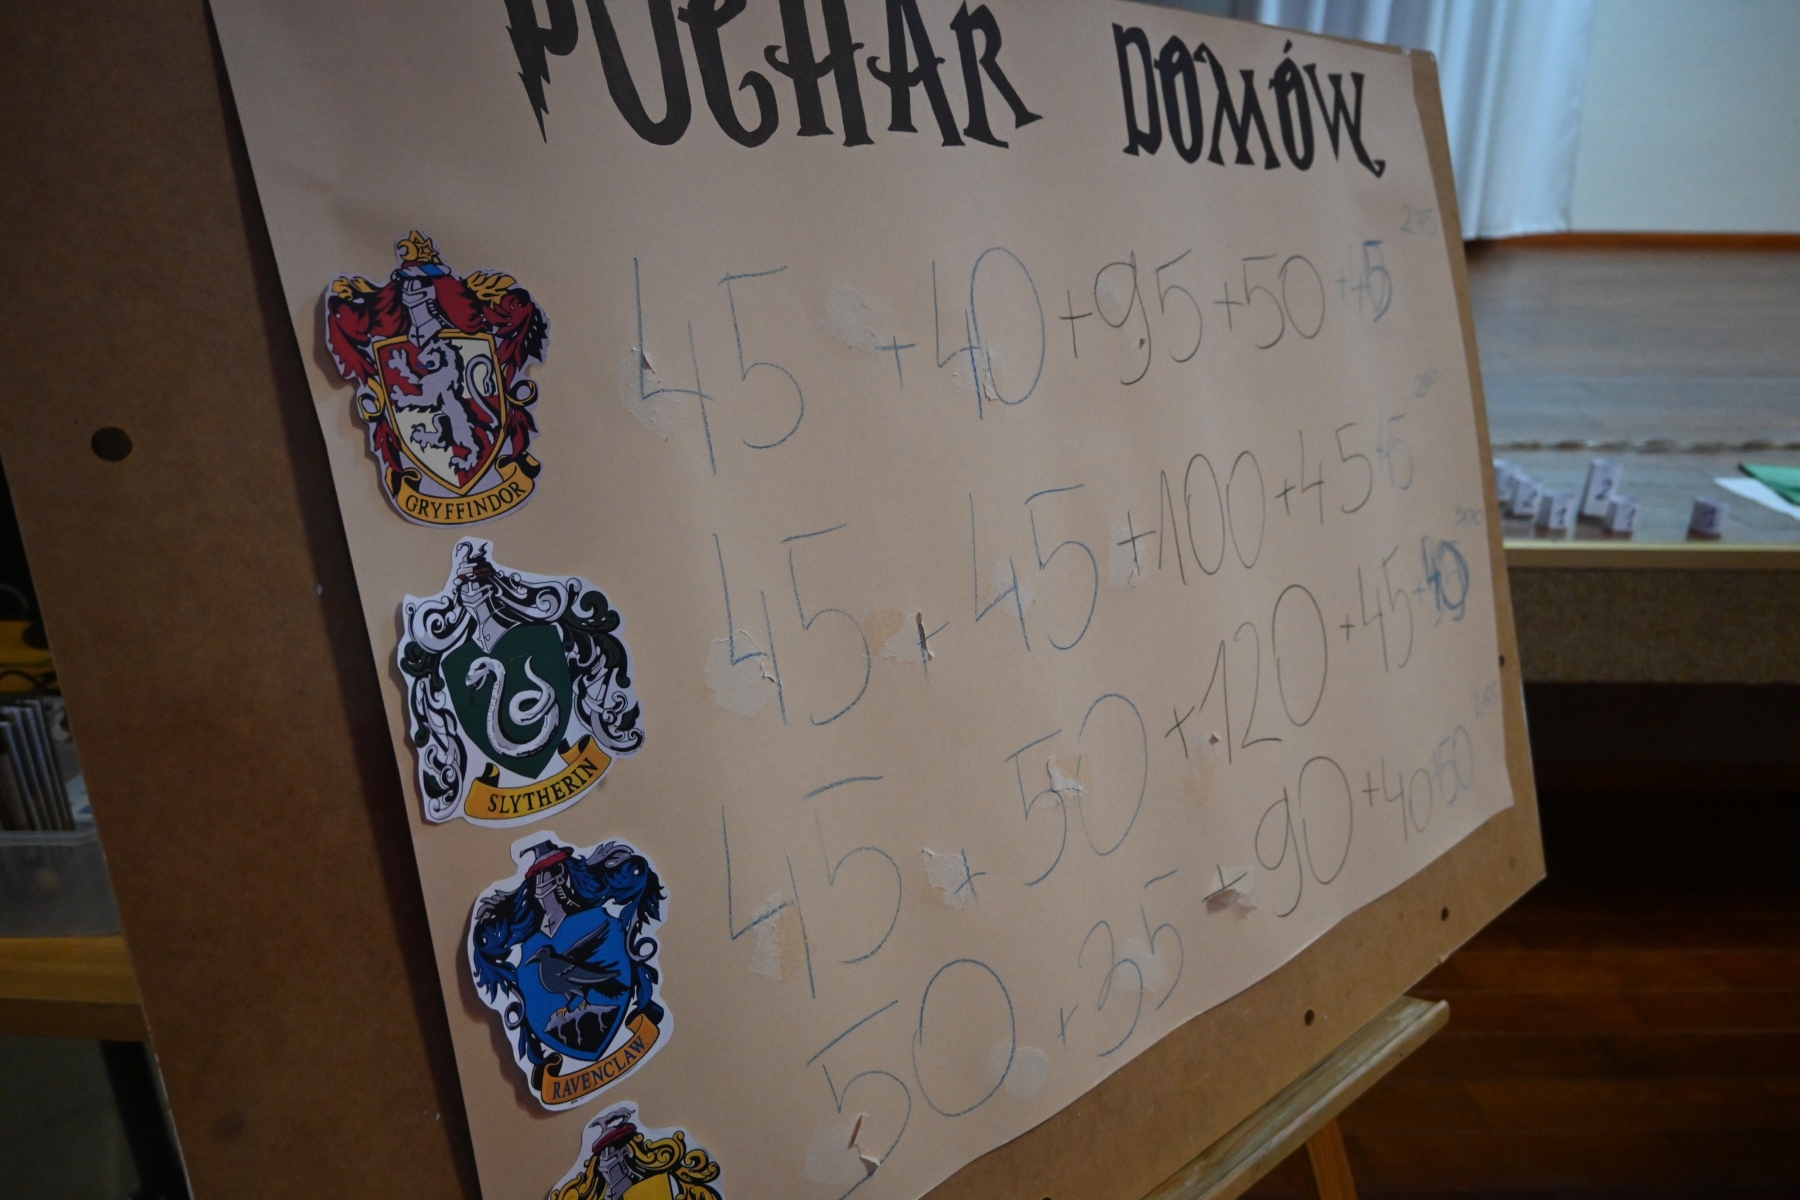 PUCHAR DOMÓW
275
GRYFFINDOR 45 + 40 + 95 + 50 + 45
SLYTHERIN 45 + 45 + 100 + 45
300
RAVENCLAW 45 + 50 + 120 + 45 + 40
50 + 35 + 90 + 40 + 50